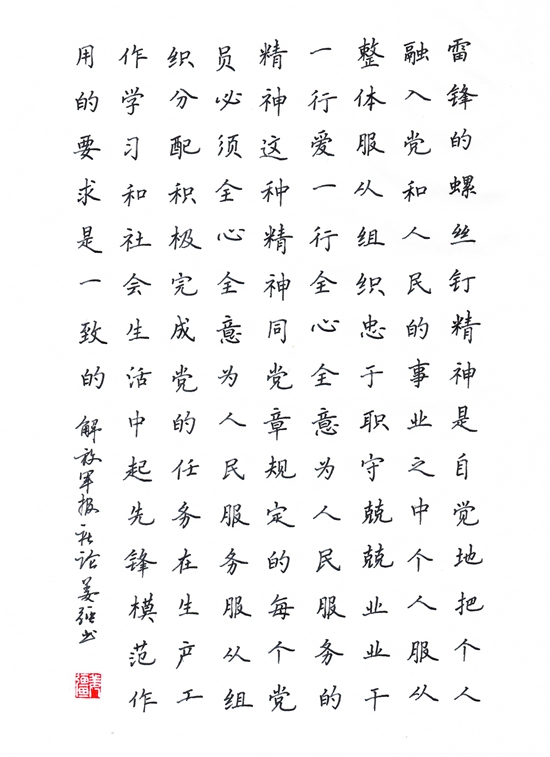 雷锋的螺丝钉精神是自觉地把个人
融入党和人民的事业之中个人服从
整体服从组织忠于职守兢兢业业干
一行爱一行全心全意为人民服务的
精神这种精神同党章规定的每个党
员必须全心全意为人民服务服从组
织分配积极完成党的任务在生产工
作学习和社会生活中起先锋模范作
用的要求是一致的 解放军报社论 姜强书